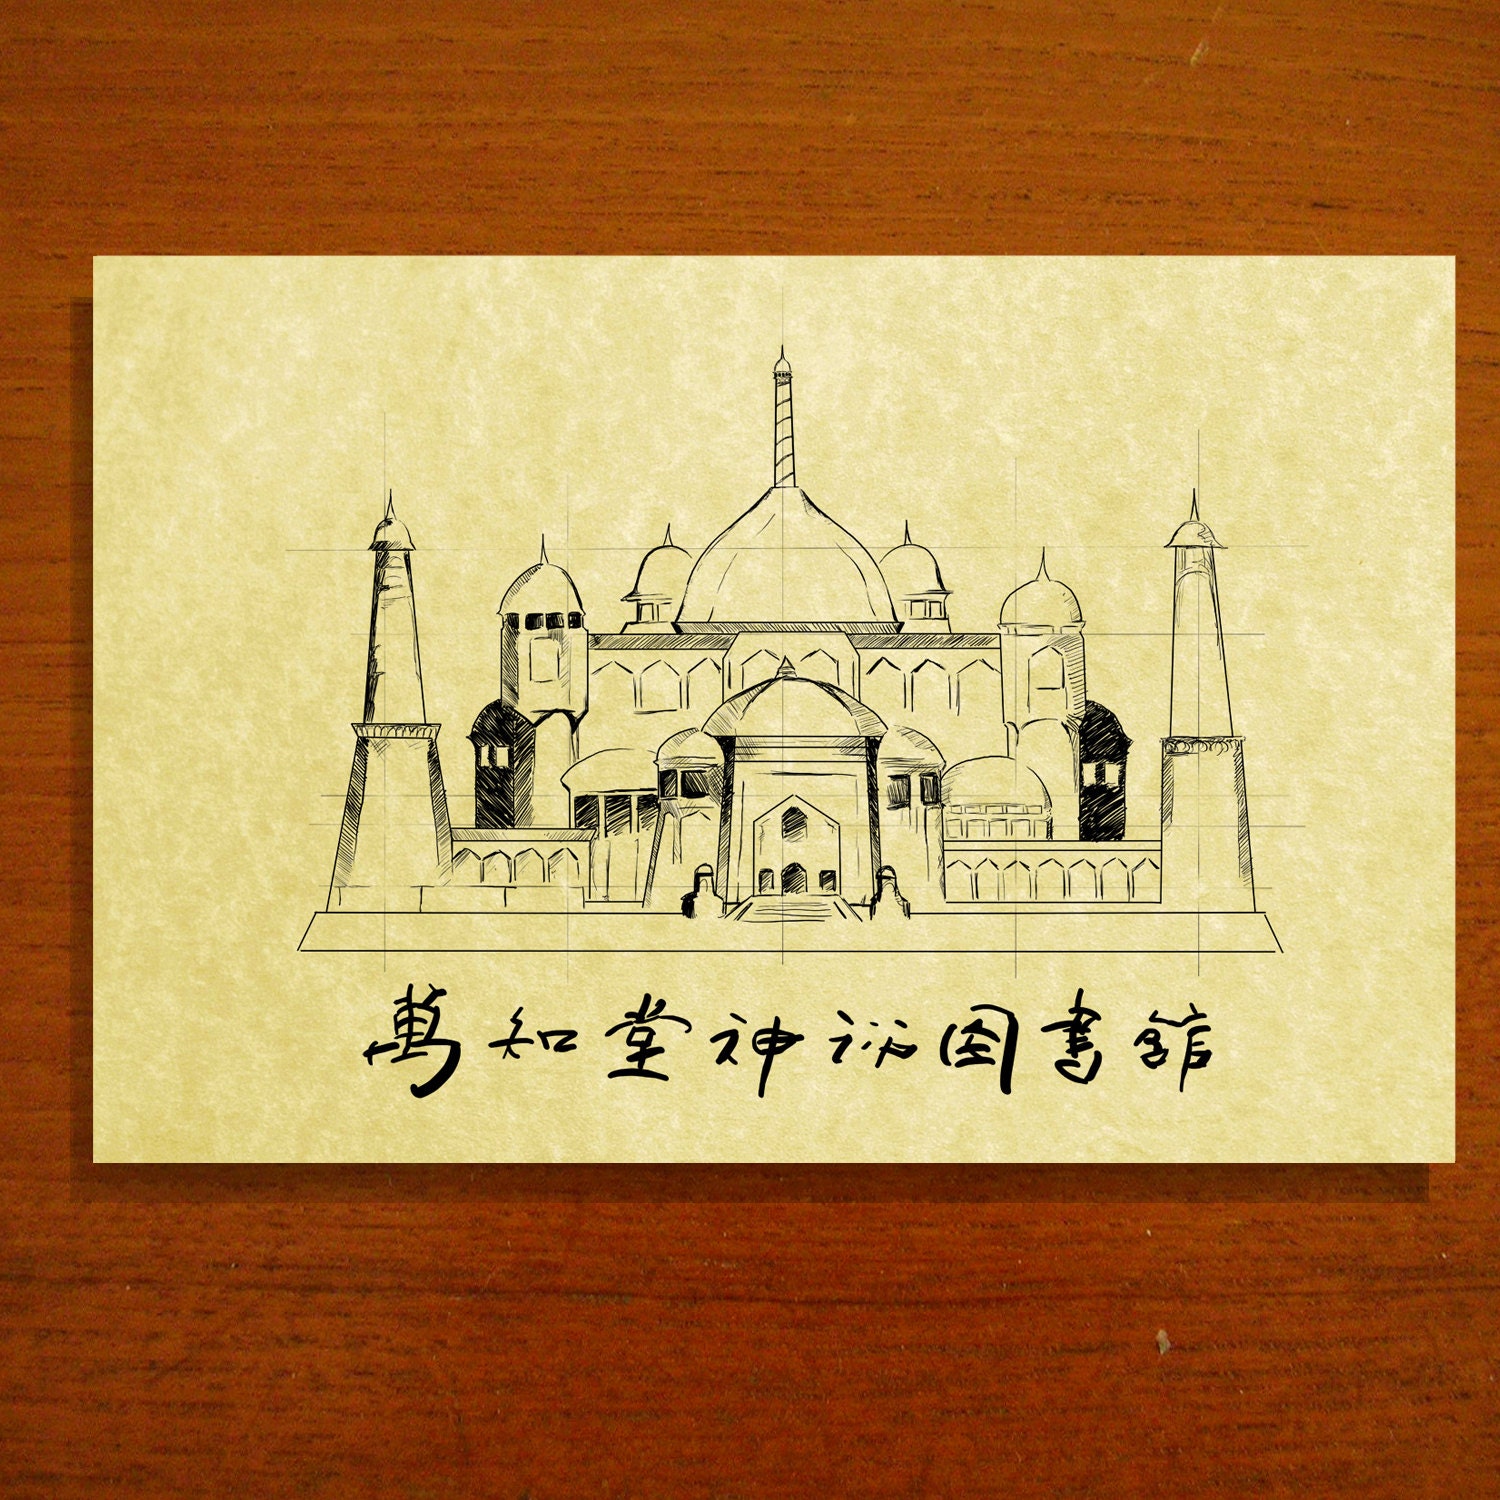 萬知堂神祕图書館